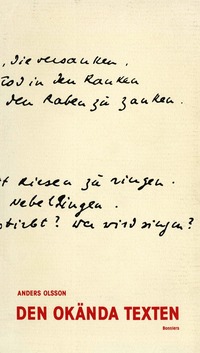 , die versanken.
Tod in den Ranken
den Raben zu zanken.
Riesen zu ringen.
Nebeldingen.
stirbt? Wer wird singen?
ANDERS OLSSON
DEN OKÄNDA TEXTEN
Bonniers